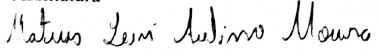 Mateus Levi Avelino Moura